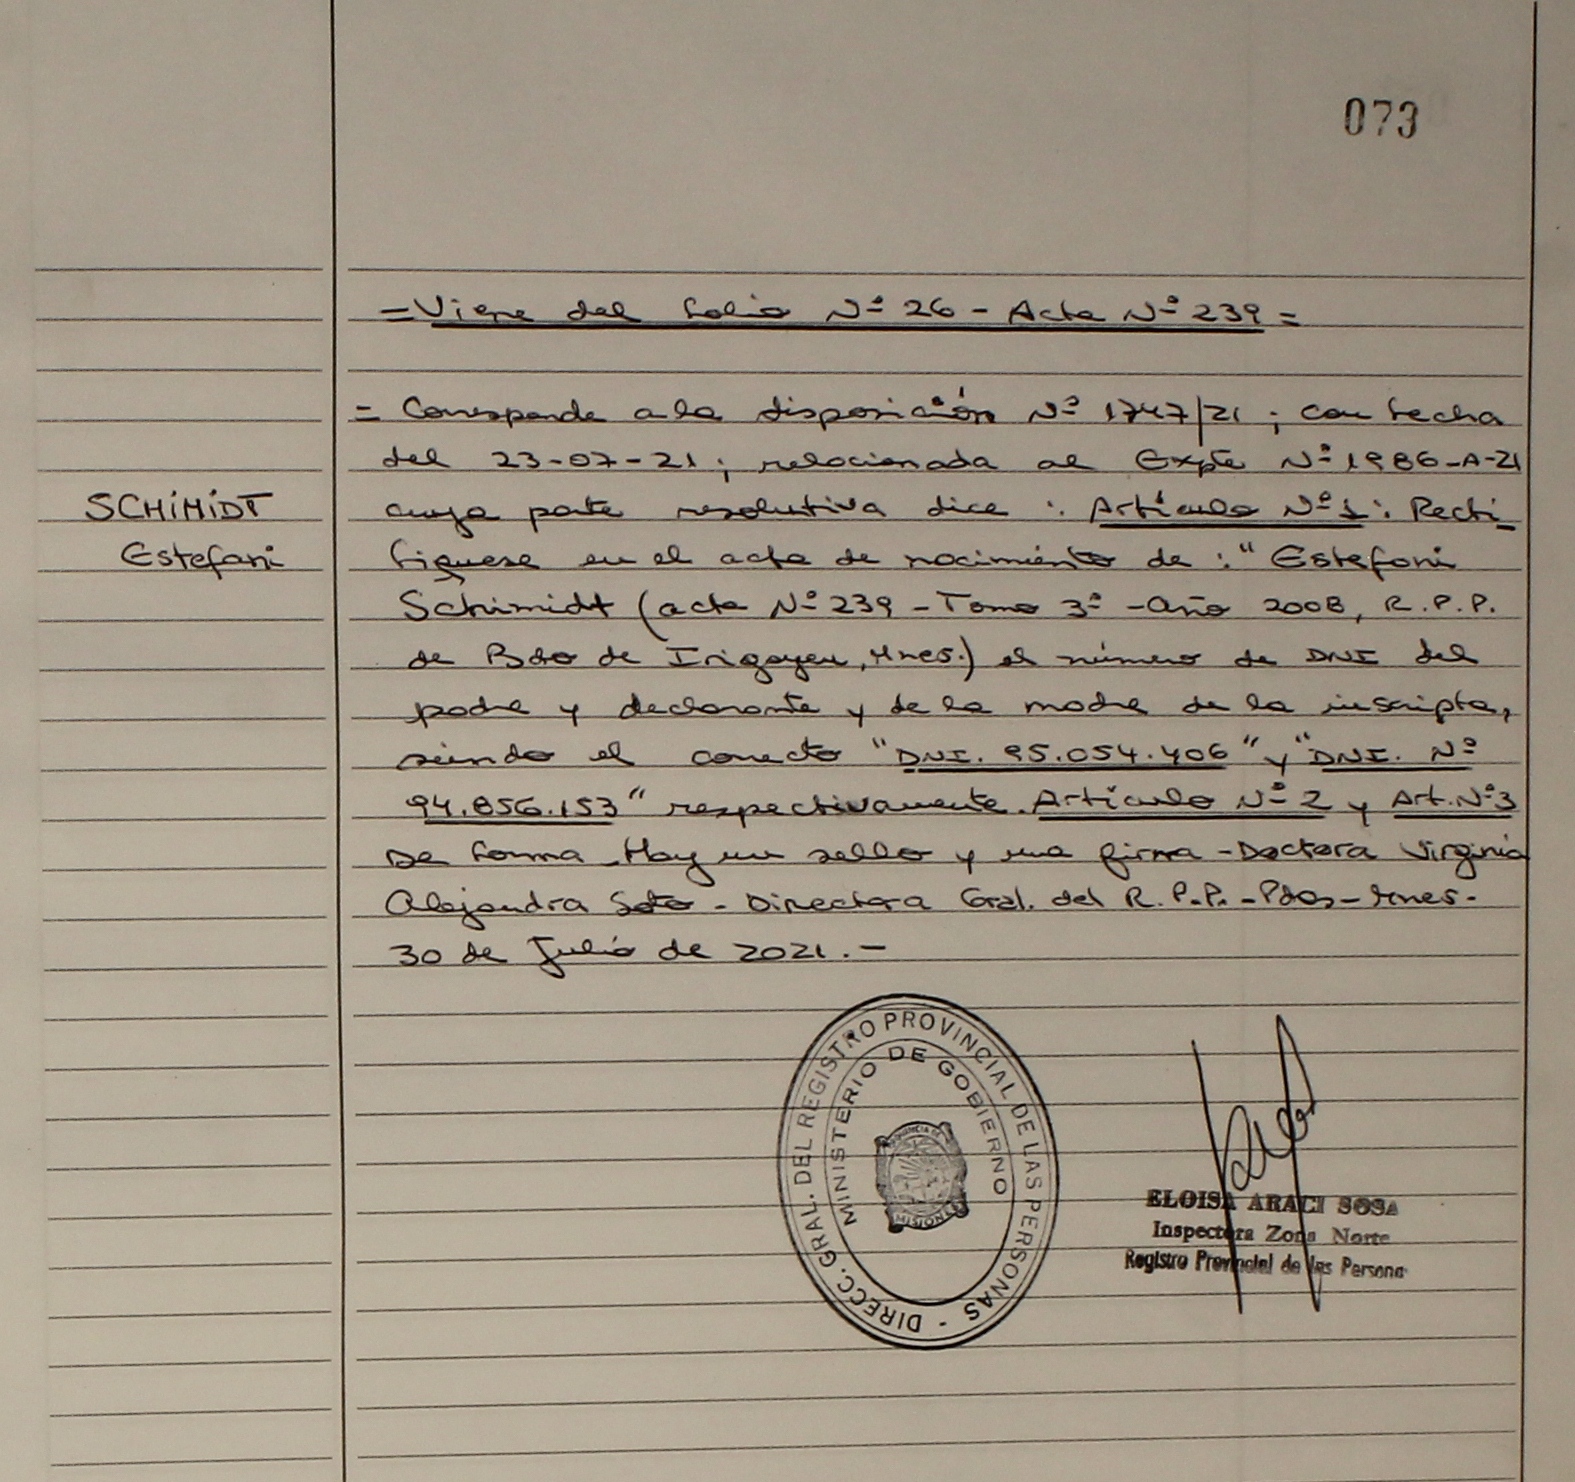 073
= Viene del folio Nº 26 - Acta Nº 239 =
= Corresponde a la disposición Nº 1747/21 ; con fecha
del 23-07-21 ; relacionada al Expte Nº 1986-A-21
SCHiMiDT
Estefani
cuya parte resolutiva dice : Artículo Nº 1 : Recti-
fiquese en el acta de nacimiento de : "Estefani
Schimidt (acta Nº 239 - Tomo 3º - Año 2008, R.P.P.
de Bdo de Irigoyen, Mnes.) el número de DNI del
padre y declarante y de la madre de la inscripta,
siendo el correcto "DNI. 95.054.406" y "DNI. Nº
94.856.153" respectivamente. Artículo Nº 2 y Art. Nº 3
De forma. Hay un sello y una firma - Doctora Virginia
Alejandra Soto - Directora Gral. del R.P.P. - Pdas - Mnes.
30 de Julio de 2021. -
DIRECC. GRAL. DEL REGISTRO PROVINCIAL DE LAS PERSONAS -
MINISTERIO DE GOBIERNO
MISIONES
ELOISA ARACI SOSA
Inspectora Zona Norte
Registro Provincial de las Persona